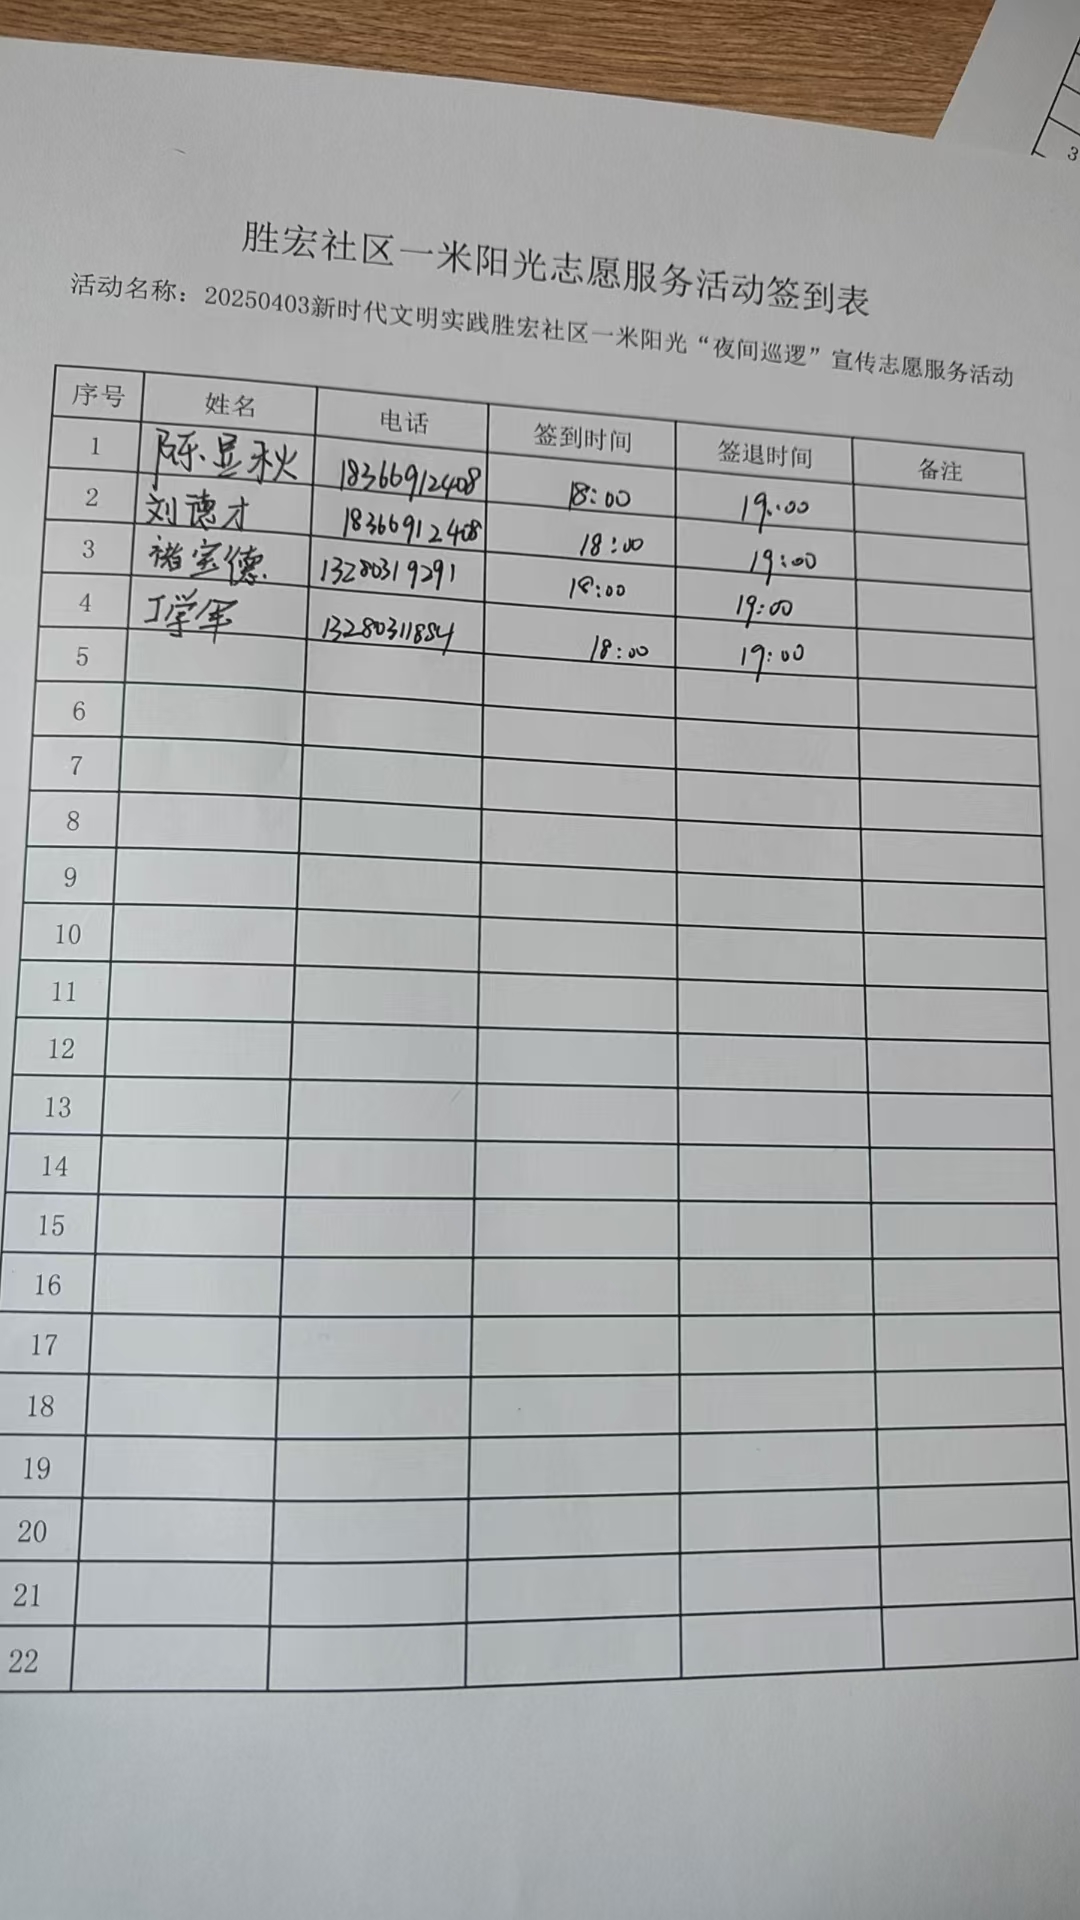 胜宏社区一米阳光志愿服务活动签到表
活动名称：20250403新时代文明实践胜宏社区一米阳光“夜间巡逻”宣传志愿服务活动
序号 姓名 电话 签到时间 签退时间 备注
1 陈显秋 18366912408 18:00 19:00
2 刘德才 18366912408 18:00 19:00
3 褚宝德 13280319291 18:00 19:00
4 丁学军 13280311854 18:00 19:00
5
6
7
8
9
10
11
12
13
14
15
16
17
18
19
20
21
22
3